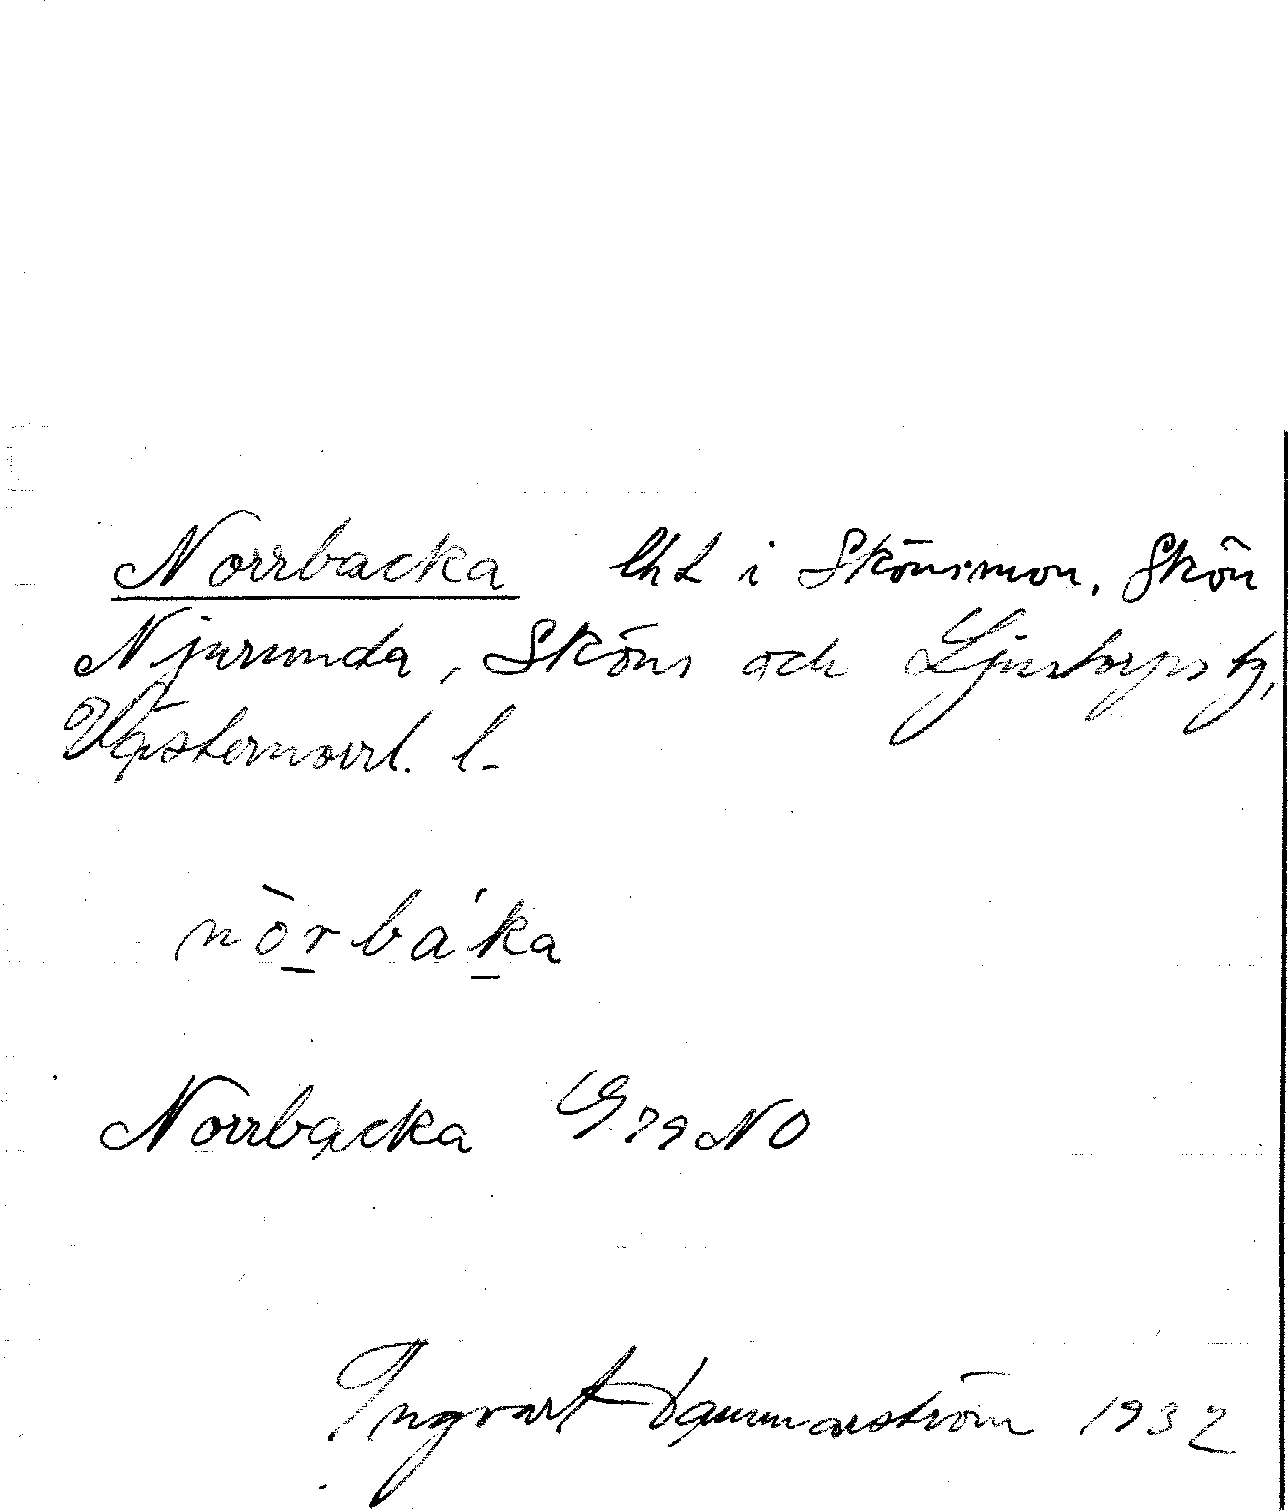 Norrbacka lht i Skönsmon, Skön
Njurunda, Sköns och Ljustorps tg,
Västernorrl. l.
nòrbáka
Norrbacka G 79 NO
Ingvart Hammarström 1932